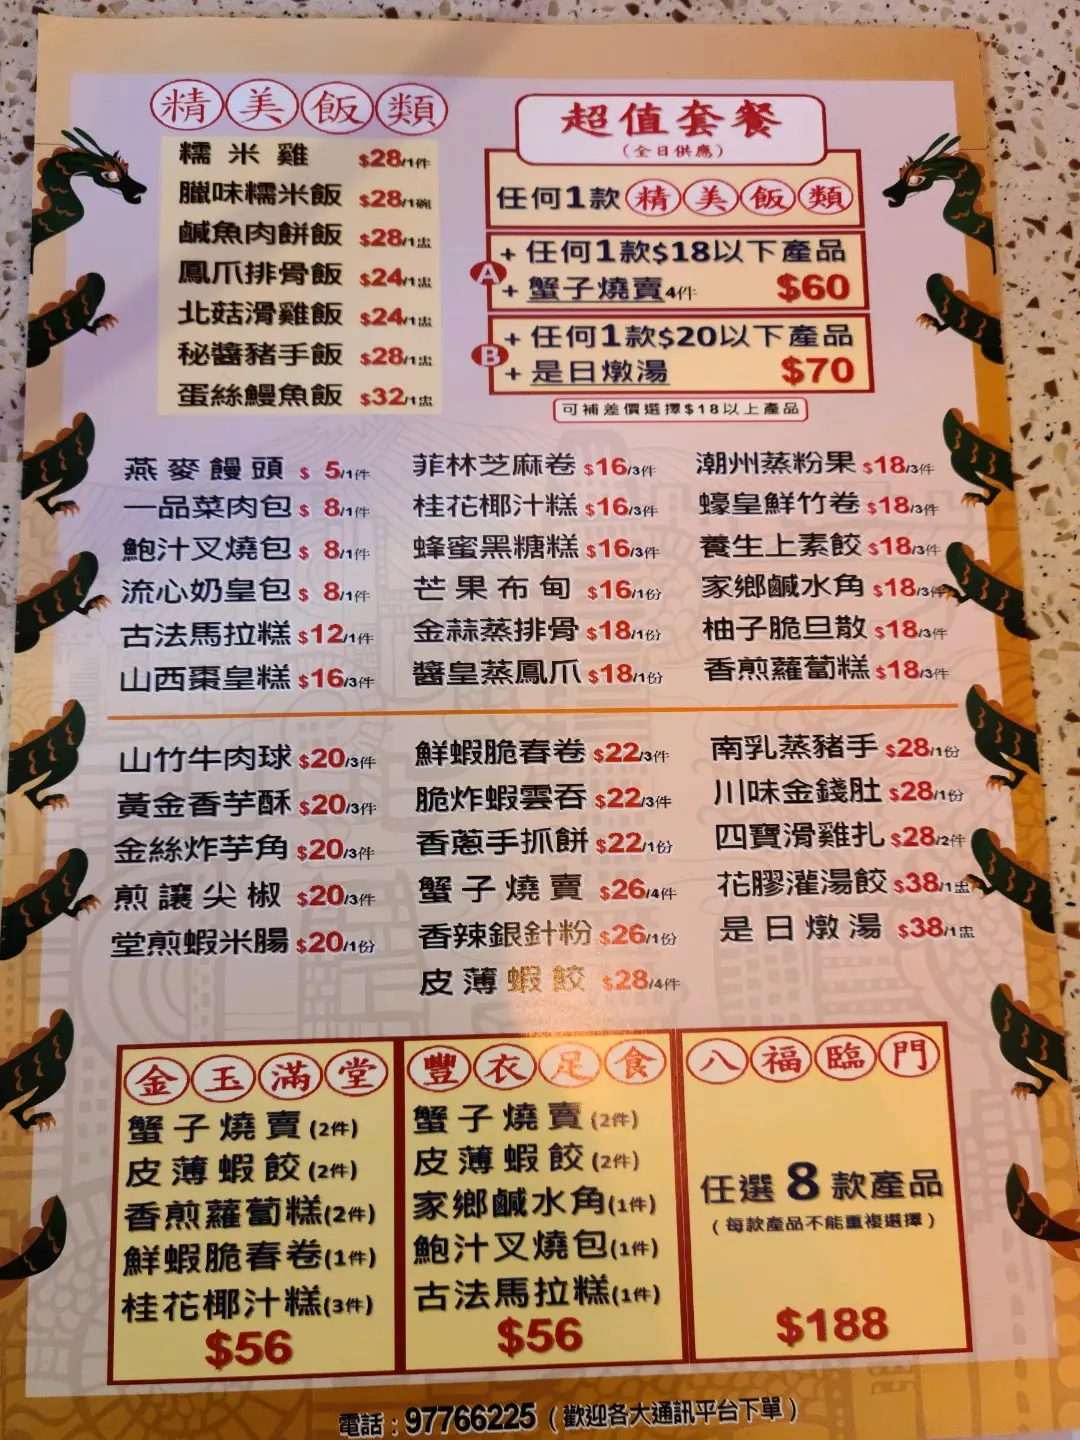 精美飯類
糯米雞 $28/1件
臘味糯米飯 $28/1碗
鹹魚肉餅飯 $28/1盅
鳳爪排骨飯 $24/1盅
北菇滑雞飯 $24/1盅
秘醬豬手飯 $28/1盅
蛋絲鰻魚飯 $32/1盅
超值套餐
(全日供應)
任何1款精美飯類
A + 任何1款$18以下產品
+ 蟹子燒賣4件 $60
B + 任何1款$20以下產品
+ 是日燉湯 $70
可補差價選擇$18以上產品
燕麥饅頭 $ 5/1件
一品菜肉包 $ 8/1件
鮑汁叉燒包 $ 8/1件
流心奶皇包 $ 8/1件
古法馬拉糕 $12/1件
山西棗皇糕 $16/3件
菲林芝麻卷 $16/3件
桂花椰汁糕 $16/3件
蜂蜜黑糖糕 $16/3件
芒果布甸 $16/1份
金蒜蒸排骨 $18/1份
醬皇蒸鳳爪 $18/1份
潮州蒸粉果 $18/3件
蠔皇鮮竹卷 $18/3件
養生上素餃 $18/3件
家鄉鹹水角 $18/3件
柚子脆旦散 $18/3件
香煎蘿蔔糕 $18/3件
山竹牛肉球 $20/3件
黃金香芋酥 $20/3件
金絲炸芋角 $20/3件
煎讓尖椒 $20/3件
堂煎蝦米腸 $20/1份
鮮蝦脆春卷 $22/3件
脆炸蝦雲吞 $22/3件
香蔥手抓餅 $22/1份
蟹子燒賣 $26/4件
香辣銀針粉 $26/1份
皮薄蝦餃 $28/4件
南乳蒸豬手 $28/1份
川味金錢肚 $28/1份
四寶滑雞扎 $28/2件
花膠灌湯餃 $38/1盅
是日燉湯 $38/1盅
金玉滿堂
蟹子燒賣(2件)
皮薄蝦餃(2件)
香煎蘿蔔糕(2件)
鮮蝦脆春卷(1件)
桂花椰汁糕(3件)
$56
豐衣足食
蟹子燒賣(2件)
皮薄蝦餃(2件)
家鄉鹹水角(1件)
鮑汁叉燒包(1件)
古法馬拉糕(1件)
$56
八福臨門
任選8款產品
(每款產品不能重複選擇)
$188
電話:97766225(歡迎各大通訊平台下單)